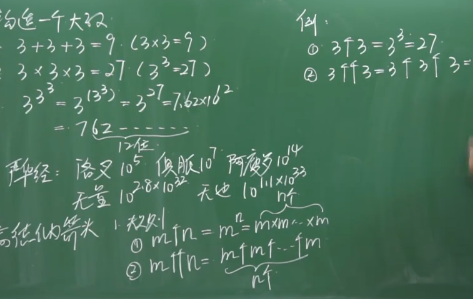 构造一个大数
3+3+3=9 (3×3=9)
3×3×3=27 (3³=27)
3^3^3=3^(3^3)=3^27=7.62×10^12
=762……
12位
华严经: 洛叉10^5 俱胝10^7 阿庾多10^14
无量10^2.8×10^32 无边10^1.1×10^33
高德纳箭头 1.规则
① m↑n=m^n=m×m…×m
n个
② m↑↑n=m↑m↑…↑m
n个
例:
① 3↑3=3³=27
② 3↑↑3=3↑3↑3=